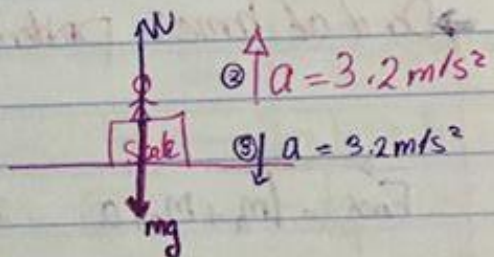 N
② a = 3.2 m/s²
Scale
③ a = 3.2 m/s²
mg